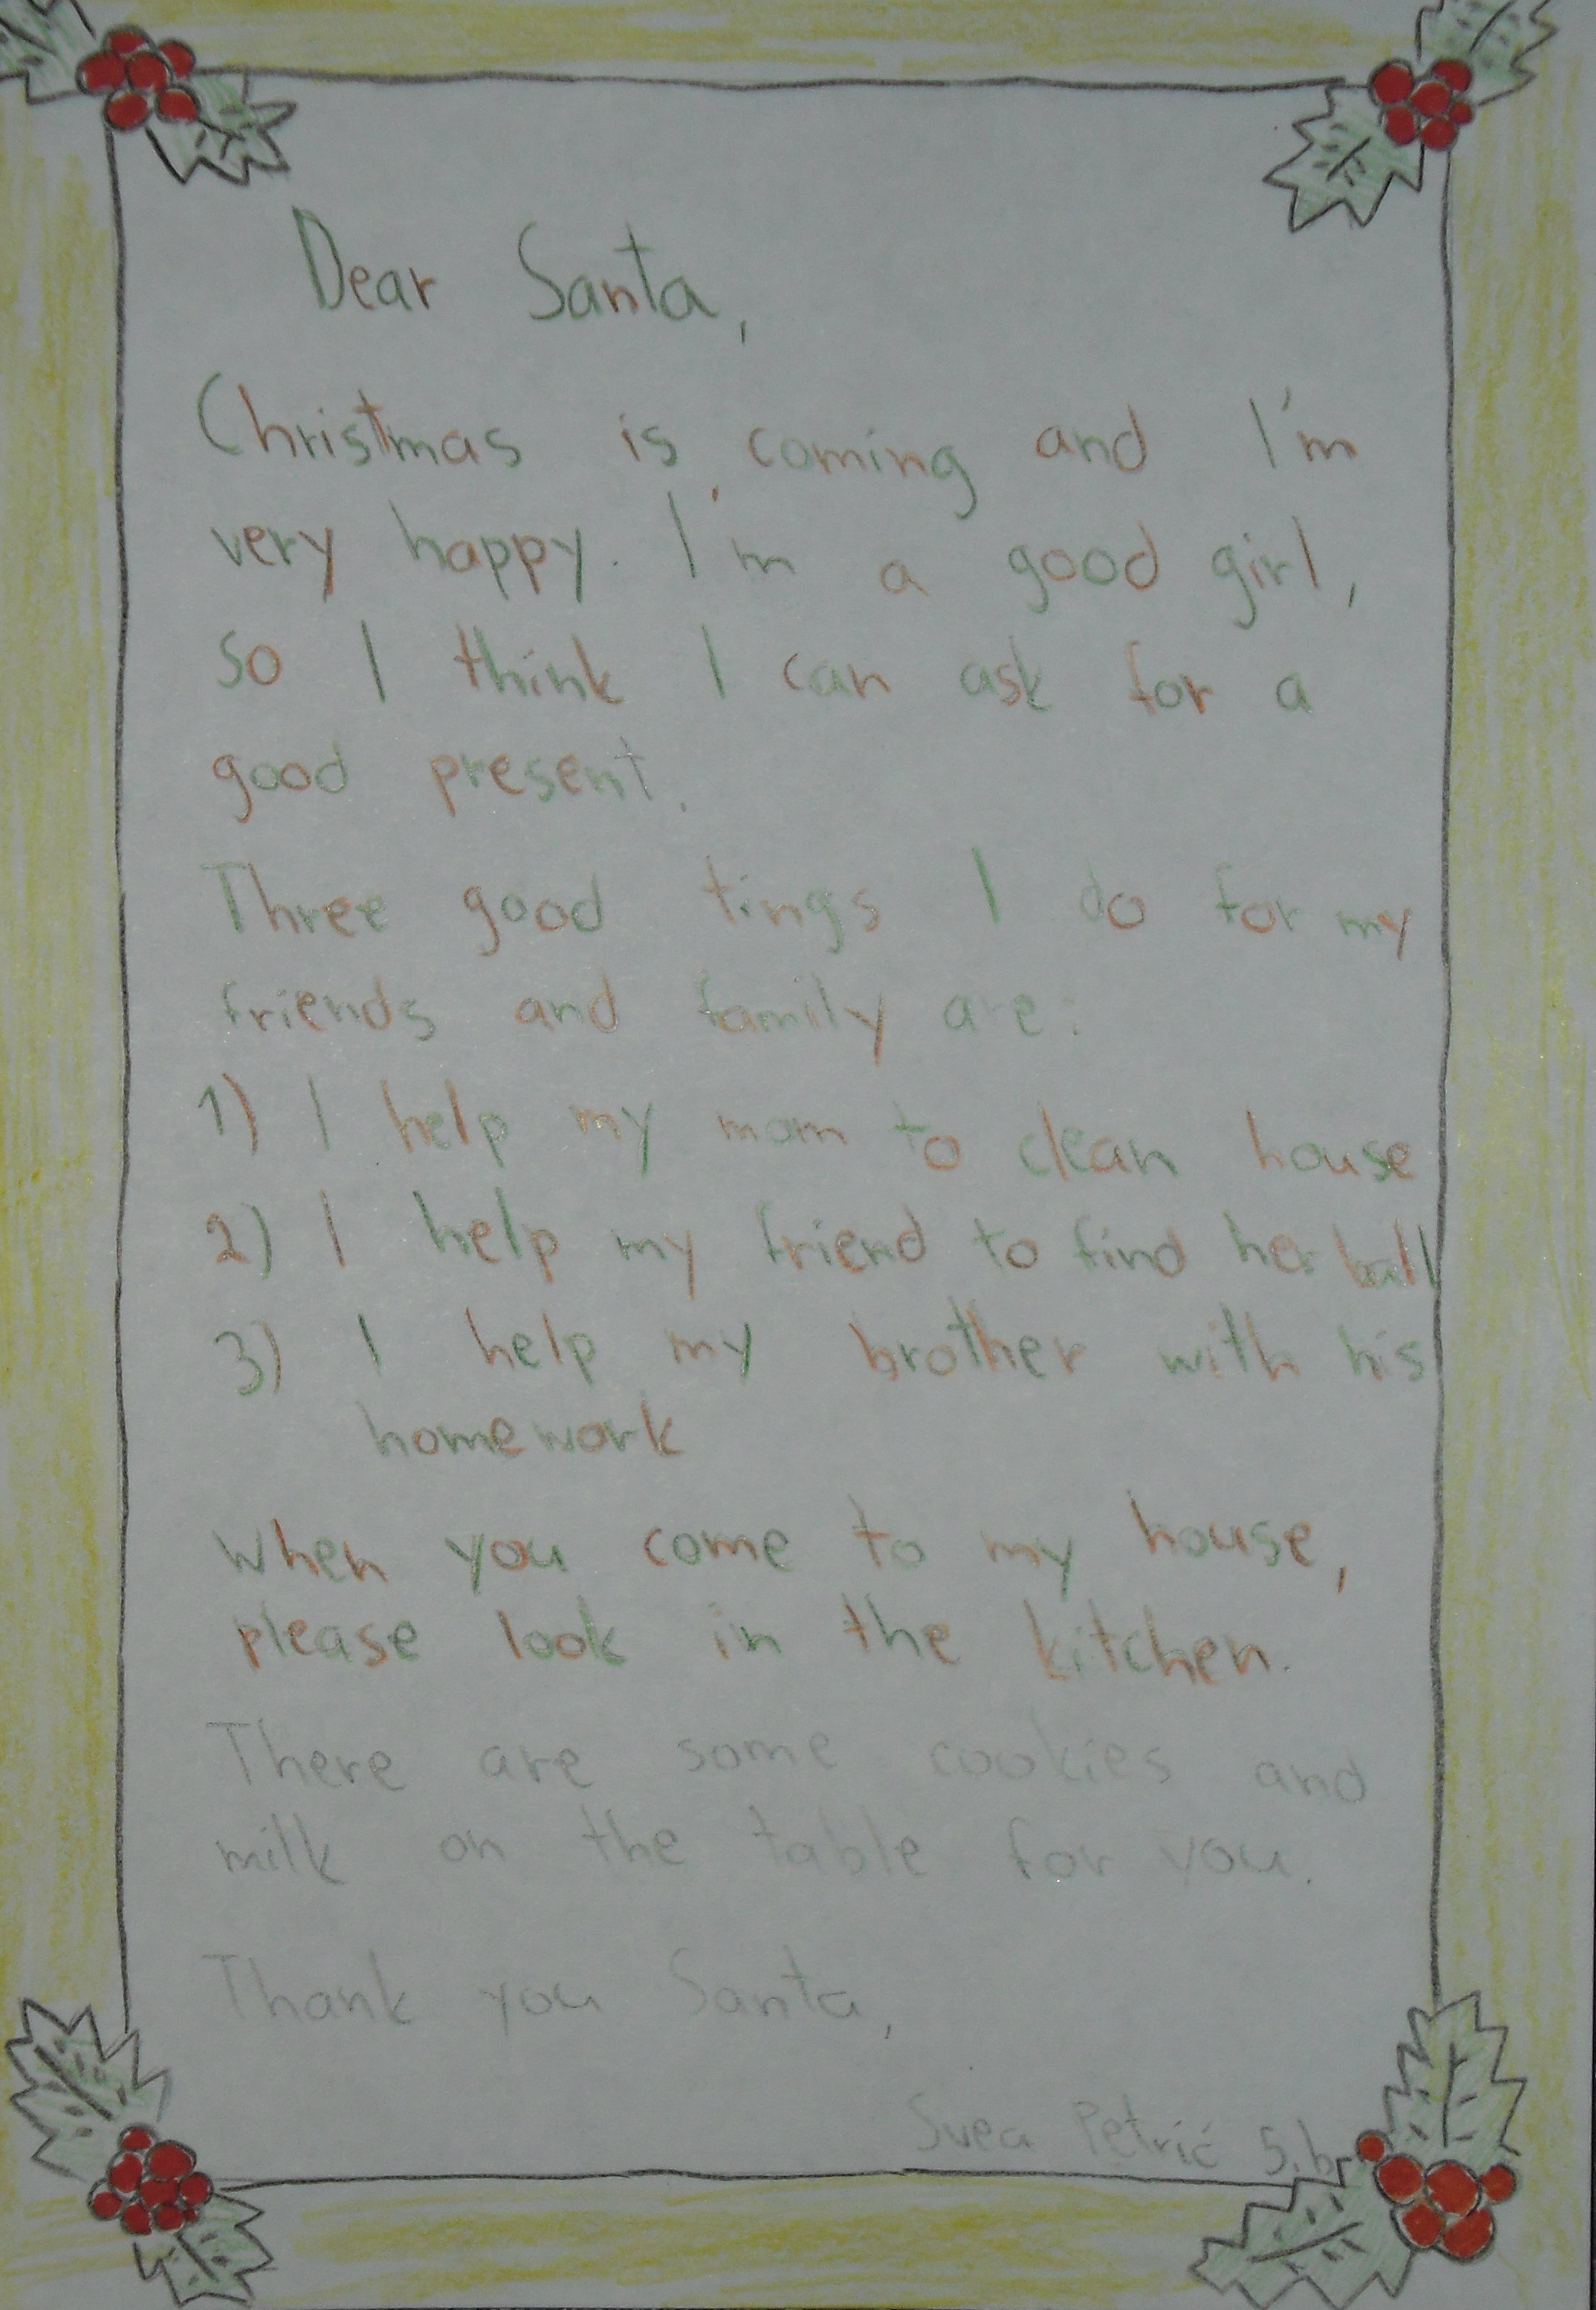 Dear Santa,
Christmas is coming and I'm
very happy. I'm a good girl,
so I think I can ask for a
good present.
Three good tings I do for my
friends and family are:
1) I help my mom to clean house
2) I help my friend to find her ball
3) I help my brother with his
homework
When you come to my house,
please look in the kitchen.
There are some cookies and
milk on the table for you.
Thank you Santa,
Svea Petrić 5.b